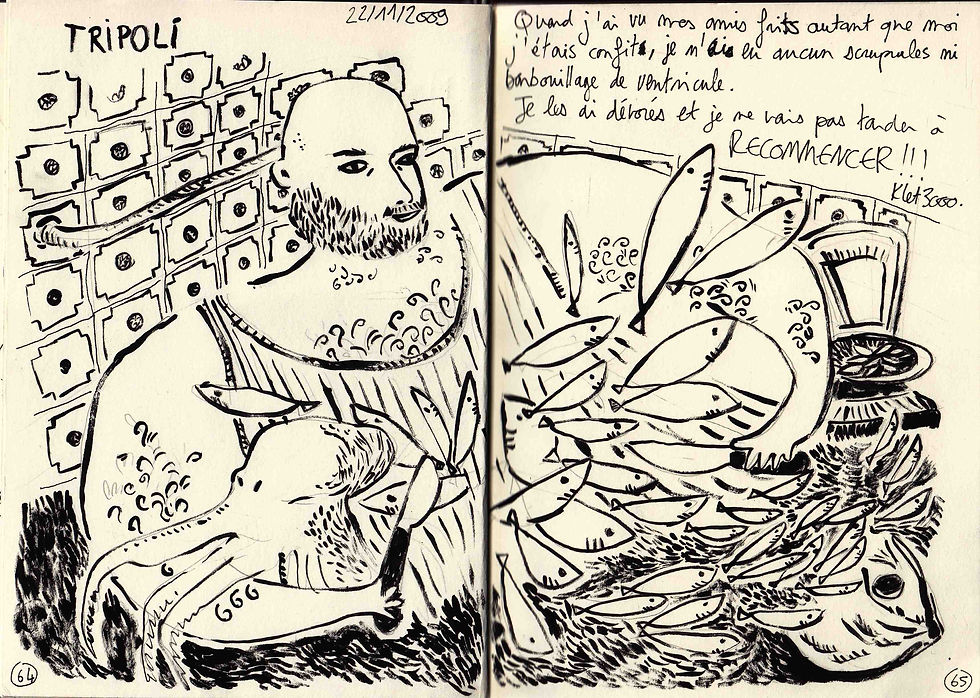 TRIPOLI
22/11/2009
Quand j'ai vu mes amis frits autant que moi
j'étais confits, je n'ai eu aucun scrupules ni
barbouillage de ventricule.
Je les ai dévorés et je ne vais pas tarder à
RECOMMENCER !!!
Klet3000.
666
64
65